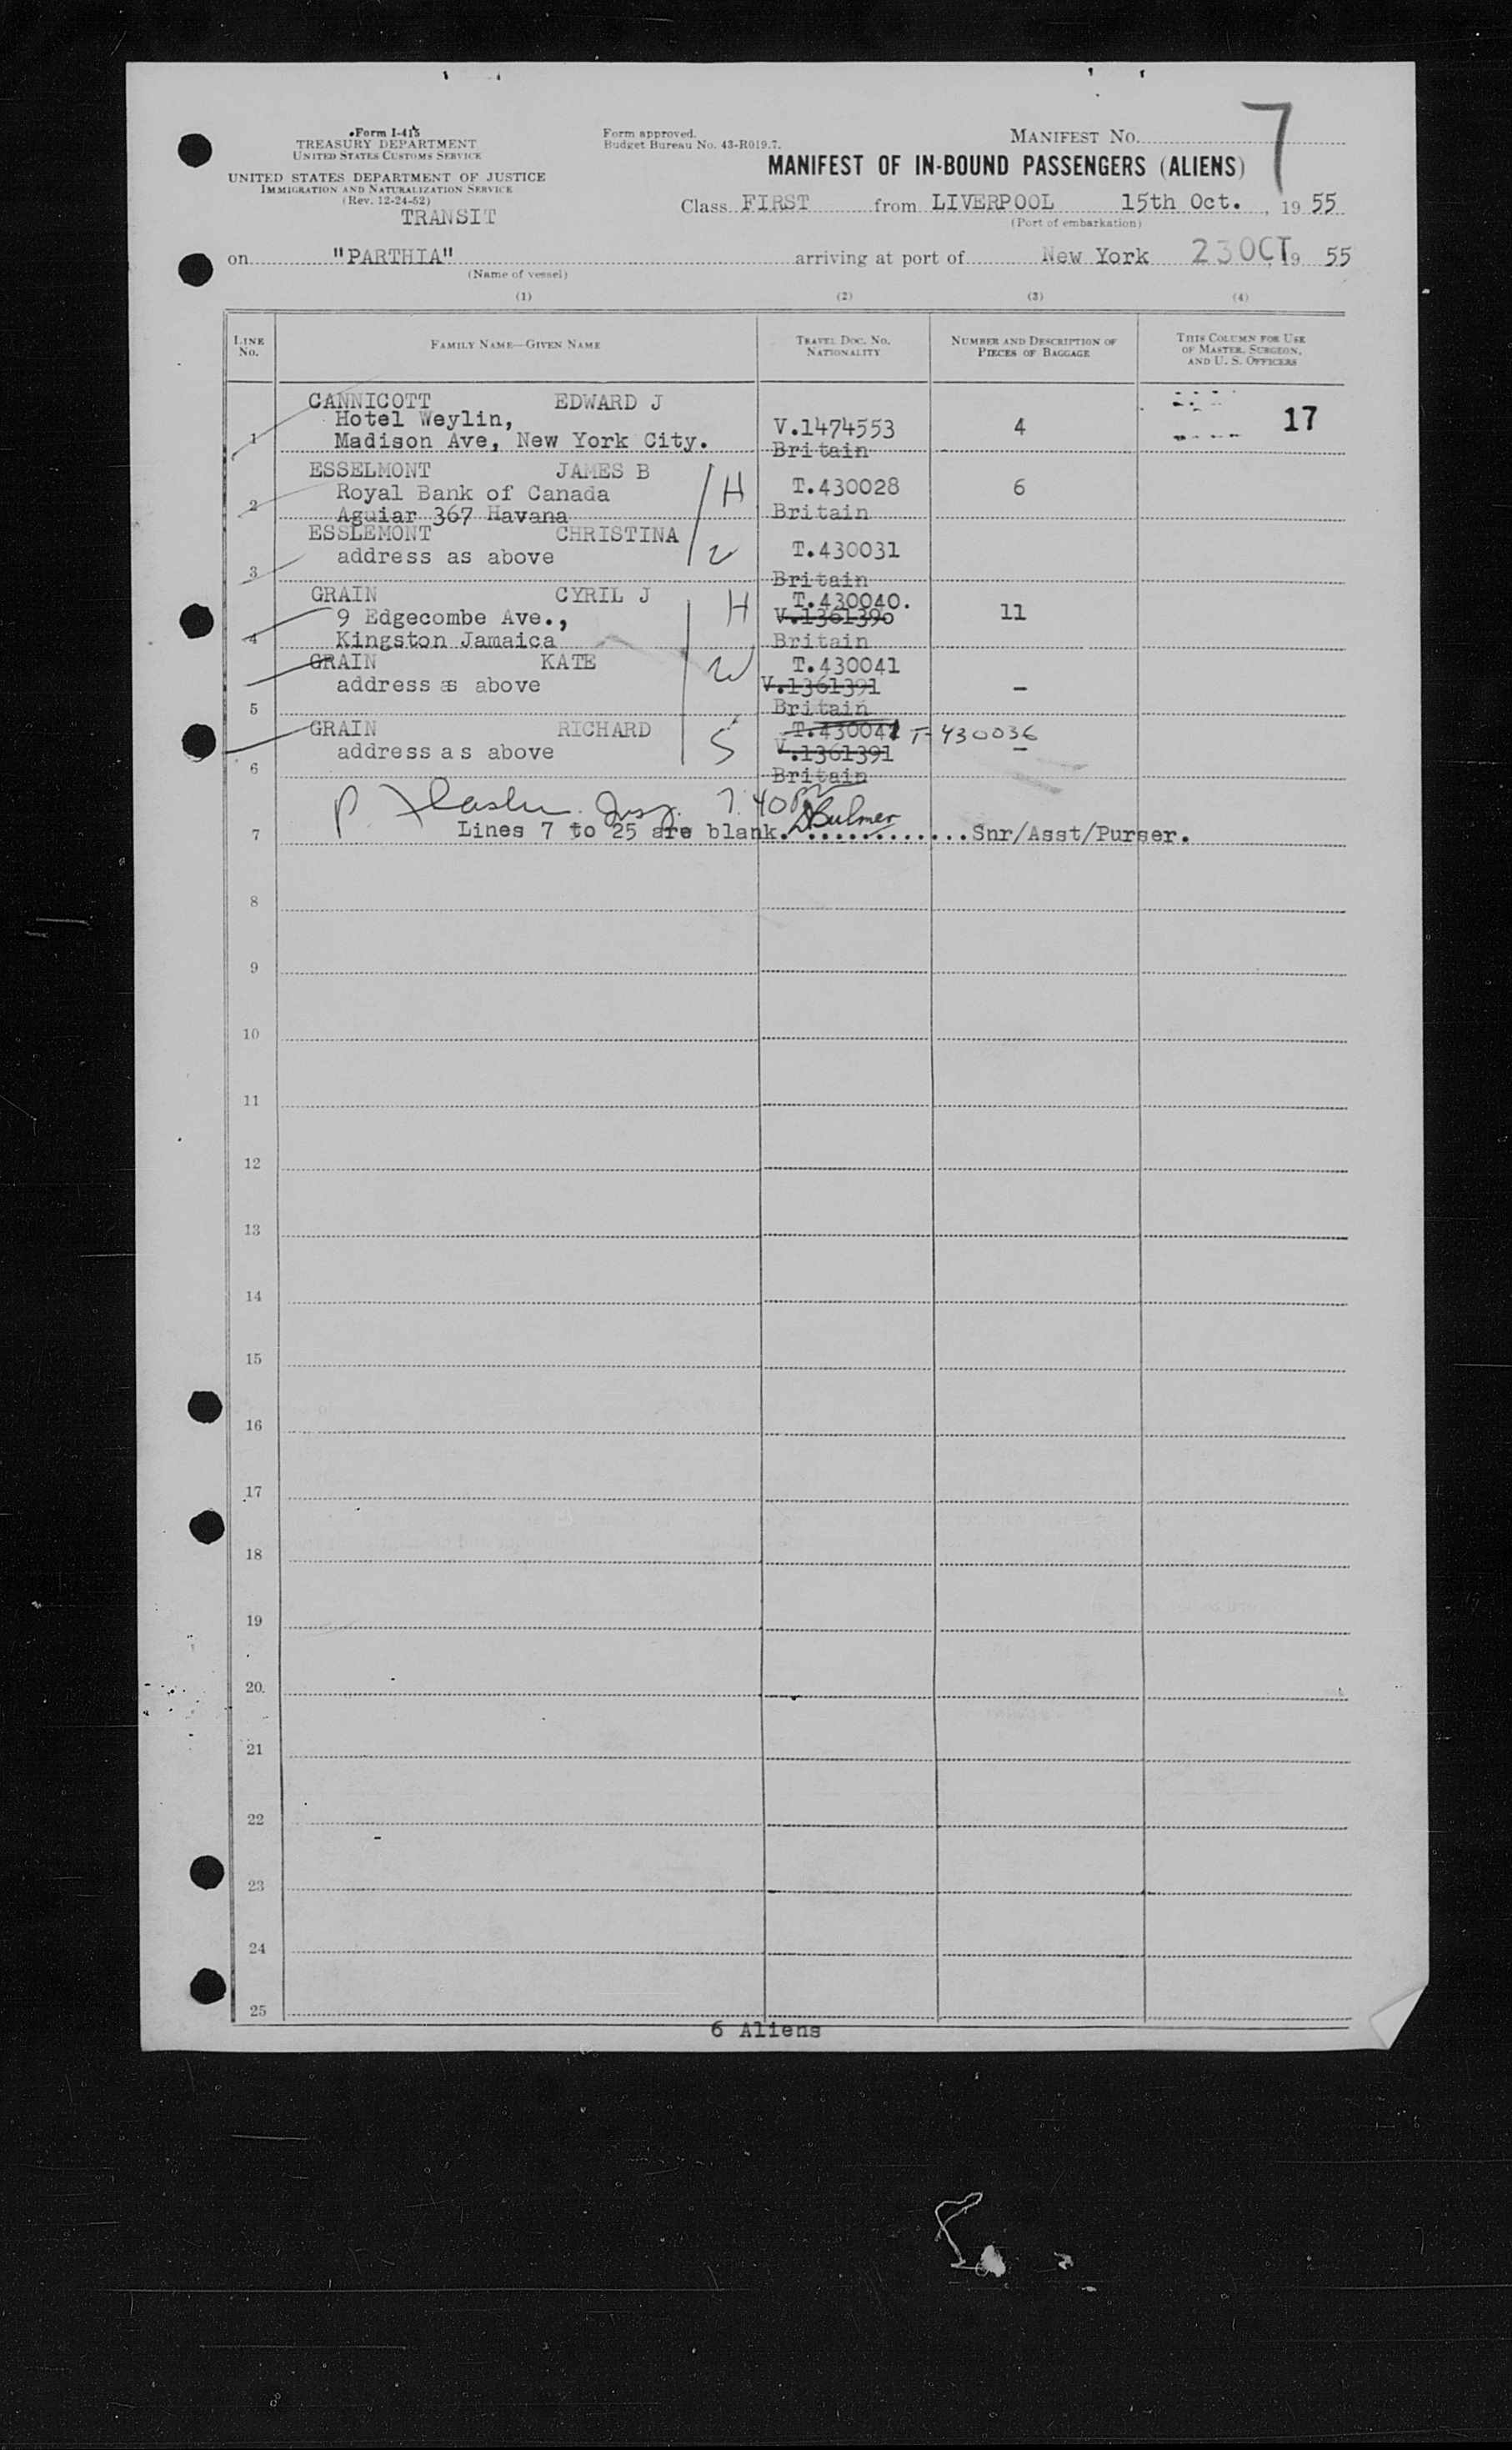 Form I-415
TREASURY DEPARTMENT
UNITED STATES CUSTOMS SERVICE
UNITED STATES DEPARTMENT OF JUSTICE
IMMIGRATION AND NATURALIZATION SERVICE
(Rev. 12-24-52)
TRANSIT
Form approved.
Budget Bureau No. 43-R019.7.
MANIFEST NO. 7
MANIFEST OF IN-BOUND PASSENGERS (ALIENS)
Class FIRST from LIVERPOOL 15th Oct. , 19 55
(Port of embarkation)
on "PARTHIA" arriving at port of New York 23 OCT 19 55
(Name of vessel)
(1) (2) (3) (4)
LINE NO. FAMILY NAME—GIVEN NAME TRAVEL DOC. NO. NATIONALITY NUMBER AND DESCRIPTION OF PIECES OF BAGGAGE THIS COLUMN FOR USE OF MASTER, SURGEON, AND U. S. OFFICERS
CANNICOTT EDWARD J
Hotel Weylin, 17
1 Madison Ave, New York City. V.1474553 4
Britain
ESSELMONT JAMES B
Royal Bank of Canada H T.430028 6
2 Aguiar 367 Havana Britain
ESSLEMONT CHRISTINA
address as above W T.430031
3 Britain
GRAIN CYRIL J H T.430040.
9 Edgecombe Ave., V.1361390 11
4 Kingston Jamaica Britain
GRAIN KATE W T.430041
address as above V.1361391 -
5 Britain
GRAIN RICHARD S T.430041 T-430036
address as above V.1361391 -
6 Britain
P. 7.40 PM
7 Lines 7 to 25 are blank. DBulmer Snr/Asst/Purser.
8
9
10
11
12
13
14
15
16
17
18
19
20
21
22
23
24
25
6 Aliens